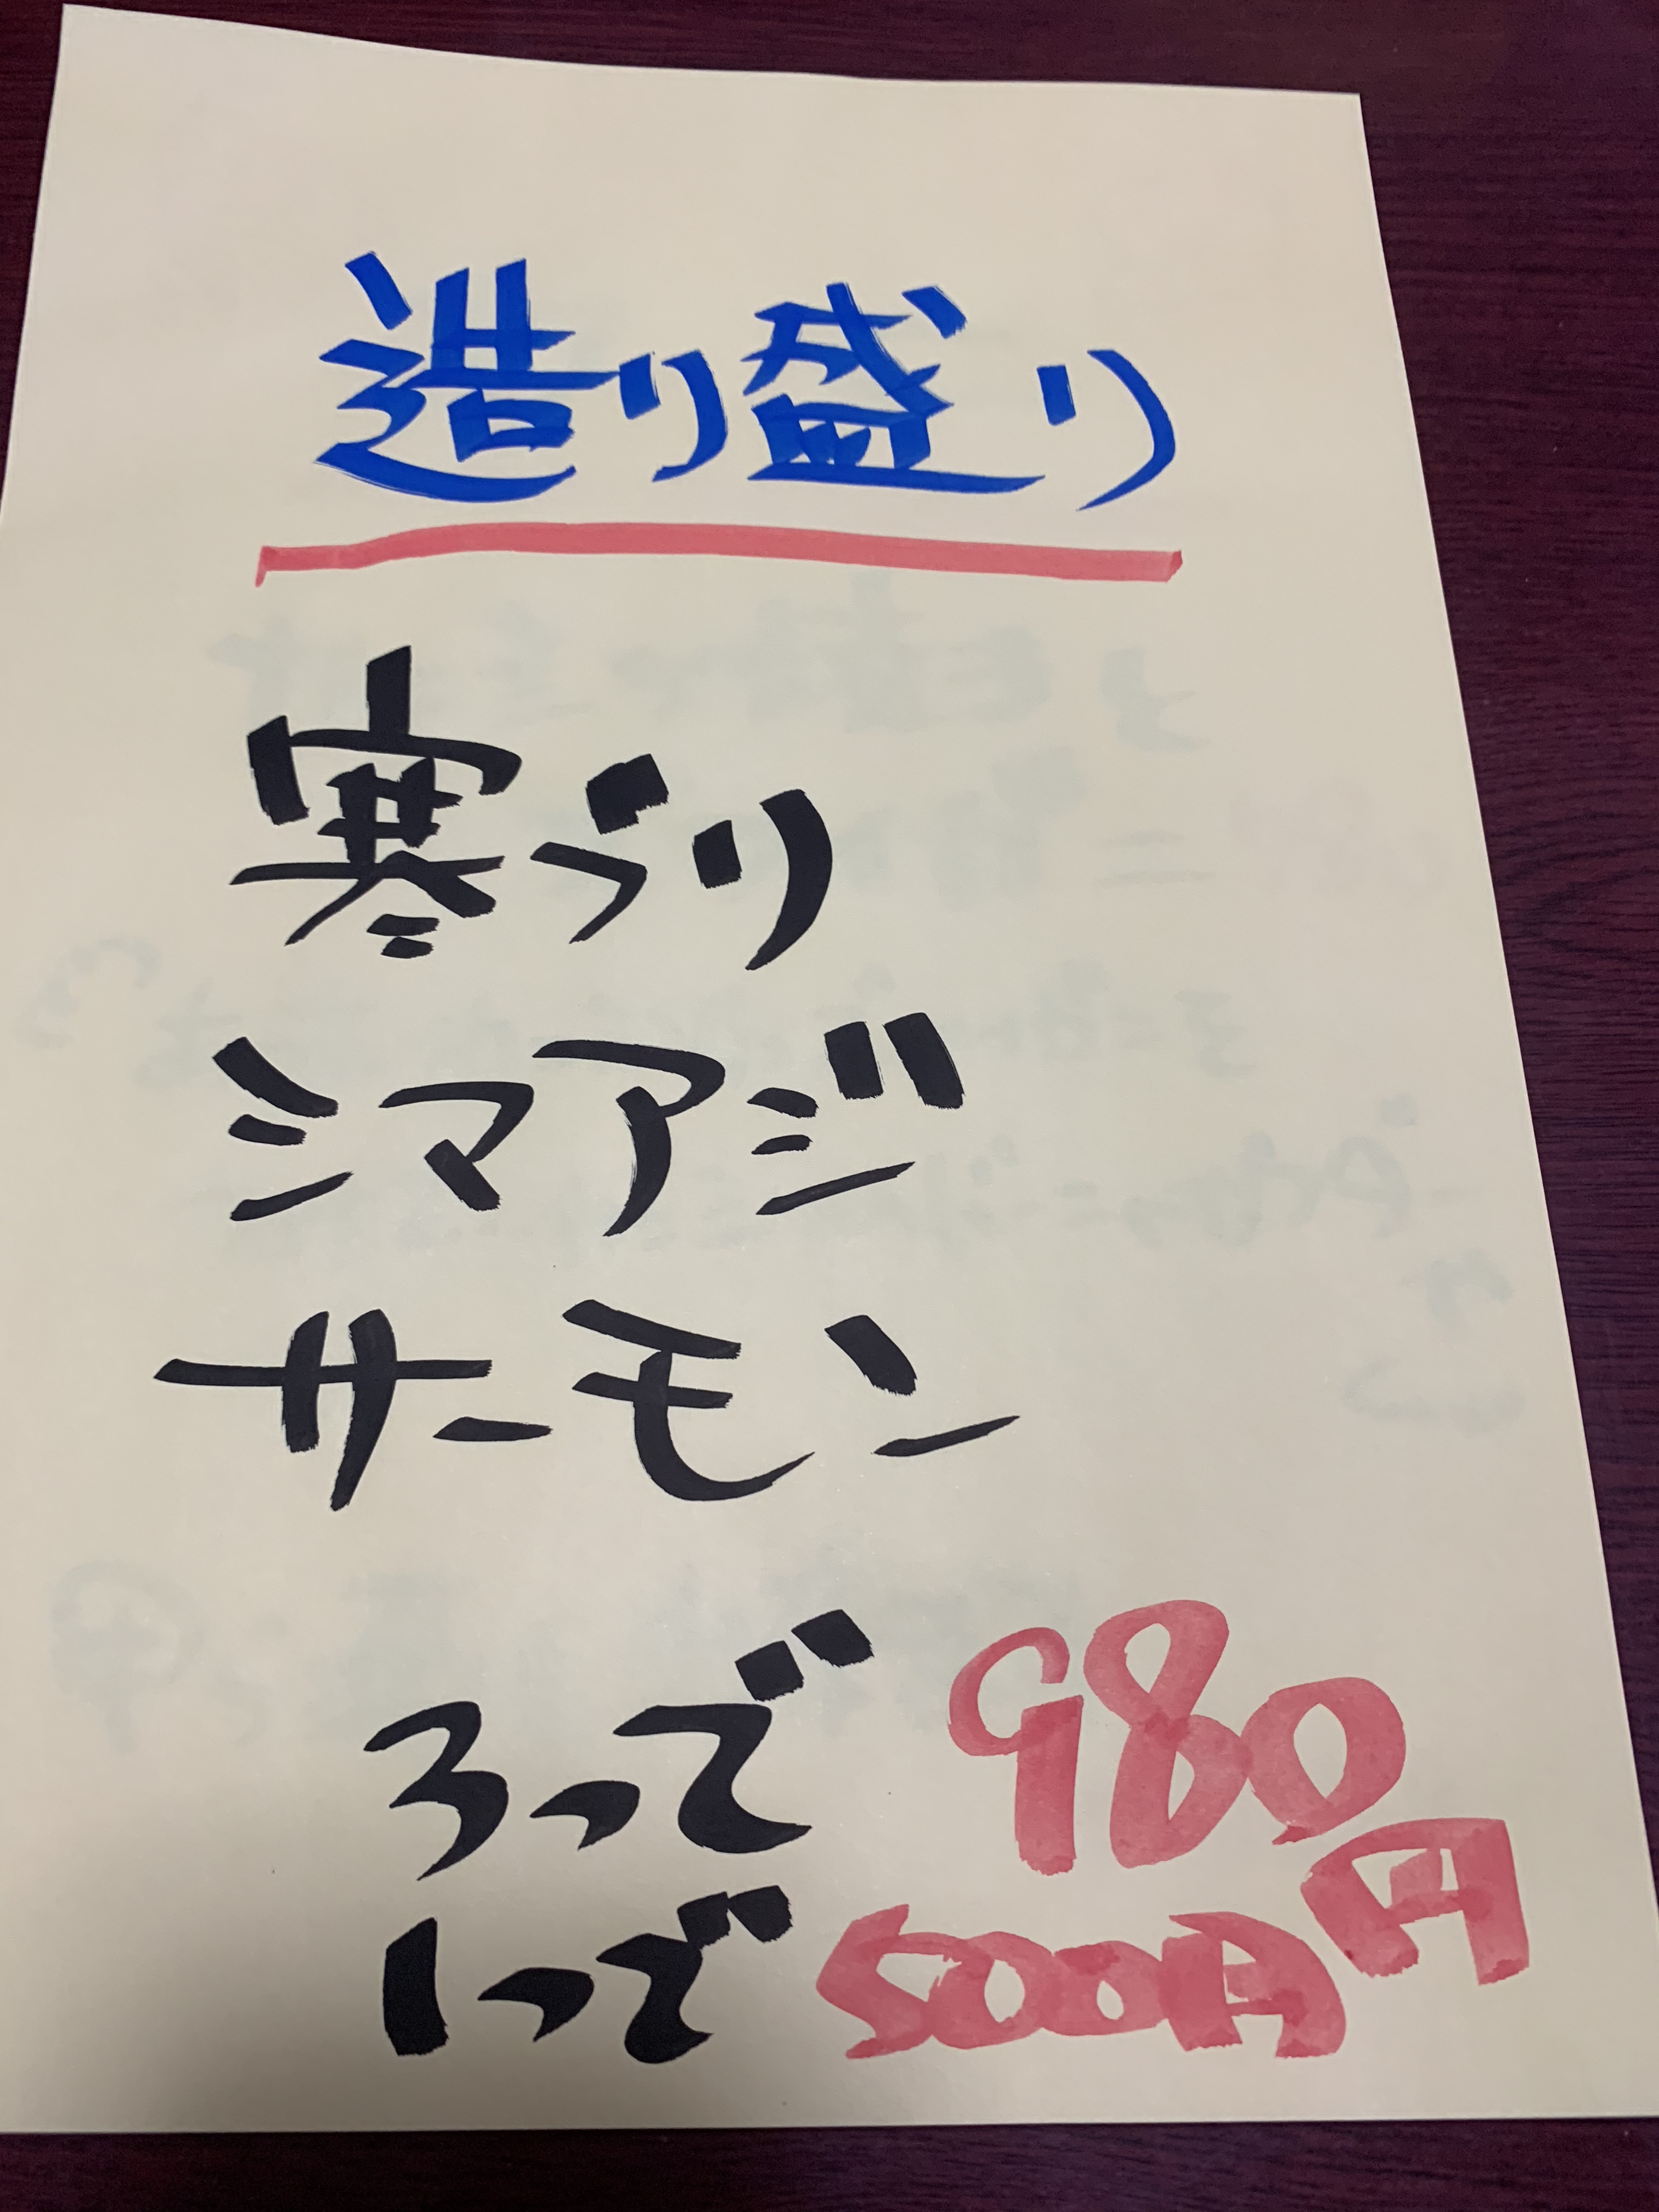 造り盛り
寒ブリ
シマアジ
サーモン
3つで 980円
1つで 500円